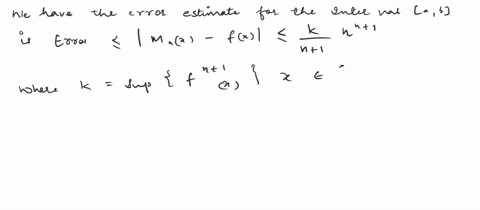 We have the error estimate for the Interval [a,b]
is Error ≤ | Mₙ(x) - f(x)| ≤ k/n+1 hⁿ⁺¹
where k = Sup { fⁿ⁺¹(x) } x ∈